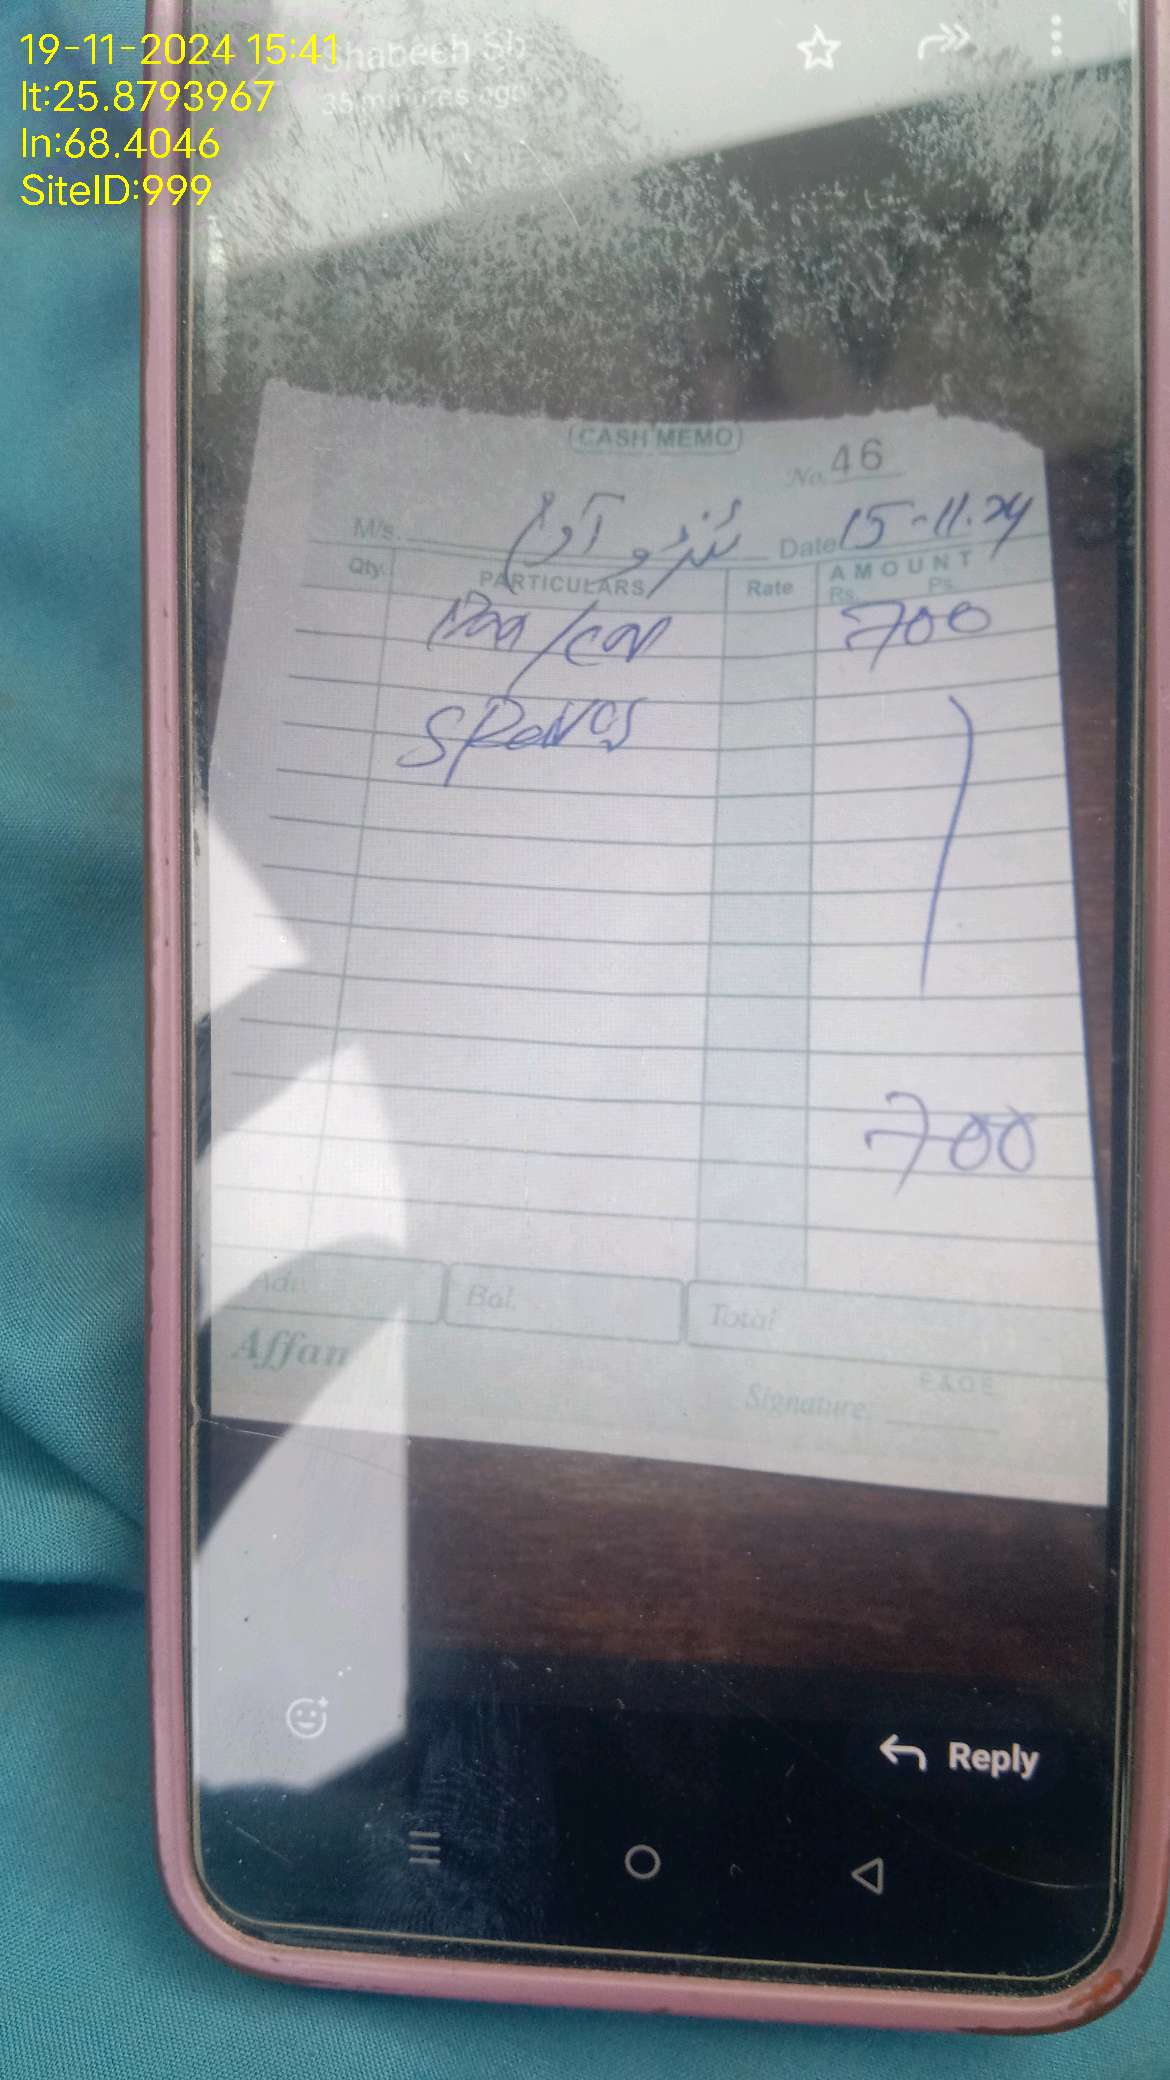 19-11-2024 15:41
lt:25.8793967
ln:68.4046
SiteID:999
Shabeeh Sb
35 minutes ago
CASH MEMO
No. 46
M/s. ٹنڈو آدم Date 15-11-24
Qty. PARTICULARS Rate AMOUNT
Rs. Ps.
700
700
Adv. Bal. Total
Affan
E&OE
Signature.
Reply